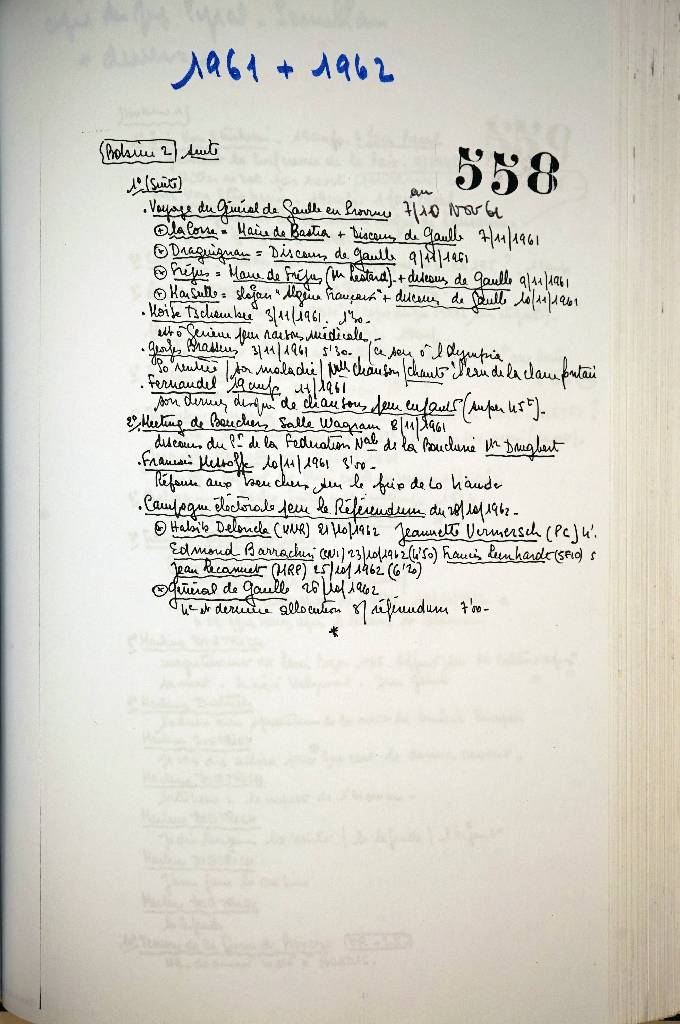 1961 + 1962
Bobine 2 suite
558
1° (Suite)
. Voyage du Général de Gaulle en Provence 7/10 NOV 61
au
⊙ la Corse = Maire de Bastia + Discours de Gaulle 7/11/1961
⊙ Draguignan = Discours de Gaulle 9/11/1961
⊙ Fréjus = Maire de Fréjus (Mr Léotard) + discours de Gaulle 9/11/1961
⊙ Marseille = slogan "Algérie Française" + discours de Gaulle 10/11/1961
. Moïse Tschombee 3/11/1961. 1'30.
est à Genève pour raisons médicales -
. Georges Brassens 3/11/1961 5'30. (ce soir à l'Olympia
So rentrée / sa maladie / Nlles chanson / chante "l'eau de la claire fontai
. Fernandel 11/1961
son dernier disque de chansons pour enfants (super 45t) -
2° Meeting de Bouchers Salle Wagram 8/11/1961
discours du Pt de la Federation Nale de la Boucherie Mr Drugbert
. Francois Messoffe 10/11/1961 3'00 -
Réponse aux bouchers sur le prix de la viande
. Campagne électorale pour le Référendum du 28/10/1962 -
⊙ Habib Deloncle (UNR) 21/10/1962 Jeannette Vermersch (PC) 4'.
Edmond Barrachin (CNI) 23/10/1962 (4'50) Francis Leenhardt (SFIO) 5
Jean Lecanuet (MRP) 25/10/1962 (6'20)
⊙ Général de Gaulle 26/10/1962
4e et dernière allocution s/ référendum 7'00 -
*